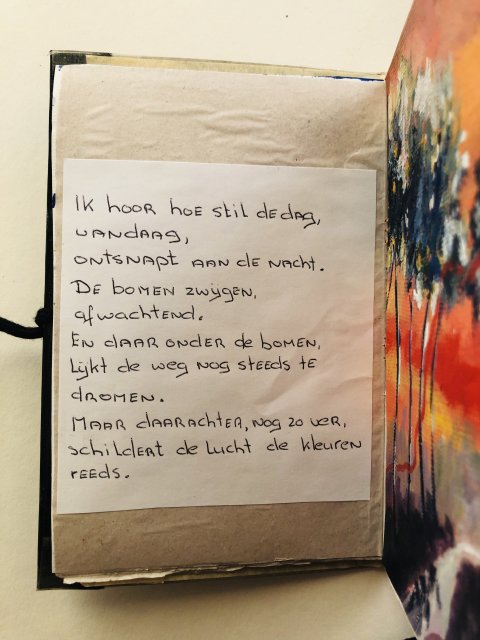 Ik hoor hoe stil de dag,
vandaag,
ontsnapt aan de nacht.
De bomen zwijgen,
afwachtend.
En daar onder de bomen,
lijkt de weg nog steeds te
dromen.
Maar daarachter, nog zo ver,
schildert de lucht de kleuren
reeds.